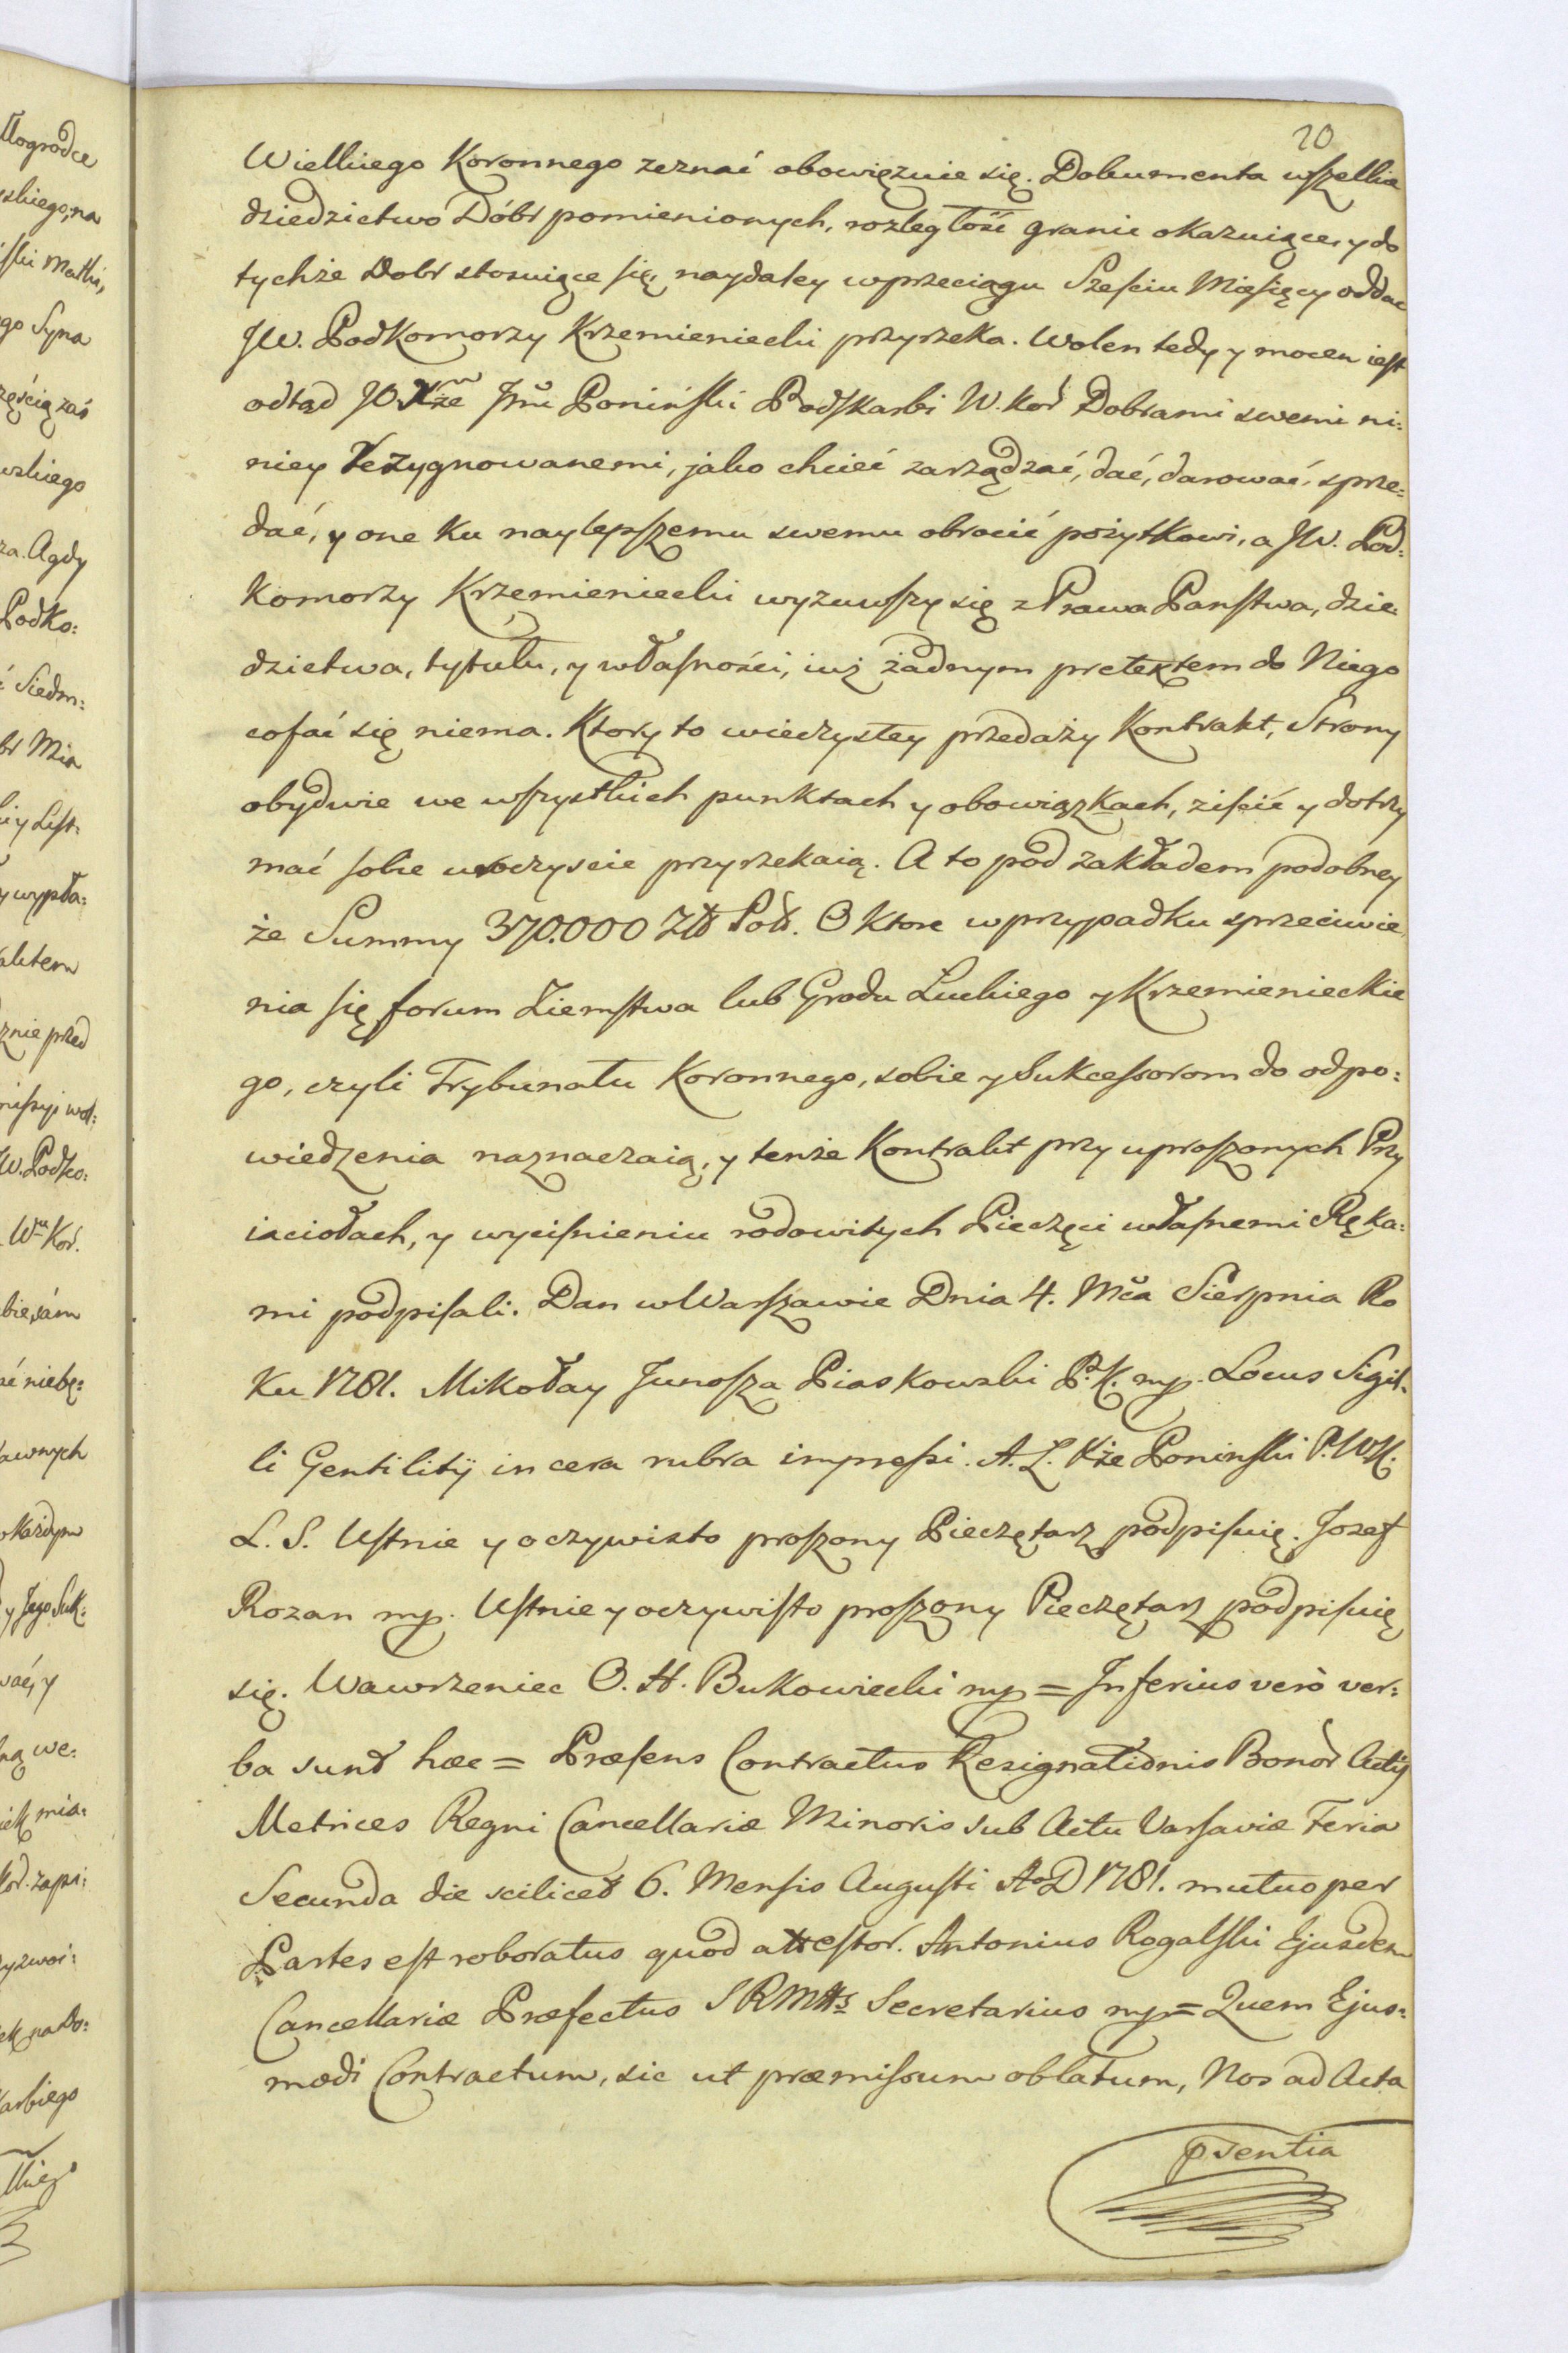 20
Wielkiego Koronnego zeznać obowięzuie się. Dokumenta wszelkie
dziedzictwo Dóbr pomienionych, rozległość granic okazuiące, y do
tychże Dobr stosuiące się, naydaley w przeciągu Sześciu Miesięcy oddac
JW. Podkomorzy Krzemieniecki przyrzeka. Wolen tedy y mocen iest
odtąd JO. Xże Jmć Poniński Podskarbi W. Kor Dobrami swemi ni:
niey rezygnowanemi, jako chcieć zarządzać, dać, darować, sprze:
dać, y one ku naylepszemu swemu obrocić pożytkowi, a JW. Pod:
komorzy Krzemieniecki wyzuwszy się z Prawa Panstwa, dzie
dzictwa, tytułu, y własności, iuż żadnym pretextem do Niego
cofać się niema. Ktory to wieczystey przedaży Kontrakt, Strony
obydwie we wszystkich punktach y obowiązkach, ziścić y dotrzy
mać sobie uroczyscie przyrzekaią. A to pod zakładem podobney
że Summy 370.000 Zł Pol. O ktore w przypadku sprzeciwie
nia się forum Ziemstwa lub Grodu Luckiego y Krzemienieckie
go, czyli Trybunału Koronnego, sobie y Sukcessorom do odpo:
wiedzenia naznaczaią, y tenże Kontrakt przy uproszonych Przy
iaciołach, y wycisnieniu rodowitych Pieczęci własnemi Ręka:
mi podpisali. Dan w Warszawie Dnia 4. Mca Sierpnia Ro
ku 1781. Mikołay Junosza Piaskowski P. K. mp. Locus Sigil:
li Gentilitij in cera rubra impressi. A. Ł. Xże Poninski P. W K.
L. S. Ustnie y oczywisto proszony Pieczętarz podpisuię. Jozef
Rozan mp. Ustnie y oczywisto proszony Pieczętarz podpisuię
się. Wawrzeniec O. H. Bukowiecki mp = Inferius verò ver:
ba sunt hæc = Præsens Contractus Resignationis Bonor Actis
Metrices Regni Cancellariæ Minoris sub Actu Varsaviæ Feria
Secunda die scilicet 6. Mensis Augusti A. D 1781. mutuo per
Partes est roboratus quod attestor. Antonius Rogalski Ejusdem
Cancellariæ Præfectus S R M ttis Secretarius mp = Quem Ejus:
modi Contractum, sic ut præmissum oblatum, Nos ad Acta
psentia